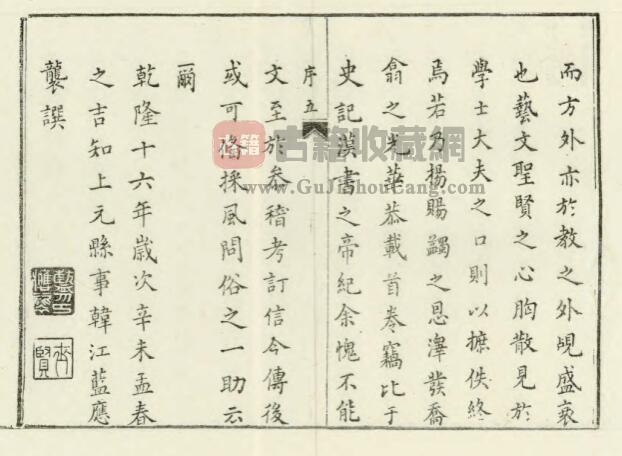 而方外亦於教之外覘盛衰
也藝文聖賢之心胸散見於
學士大夫之口則以摭佚終
焉若乃揚賜蠲之恩澤發喬
翕之光華恭載首卷竊比于
史記漢書之帝紀余愧不能
序五
文至於參稽考訂信今傳後
或可備採風問俗之一助云
爾
乾隆十六年歲次辛未孟春
之吉知上元縣事韓江藍應
襲譔
古籍
古籍收藏網
www.GuJiShouCang.com